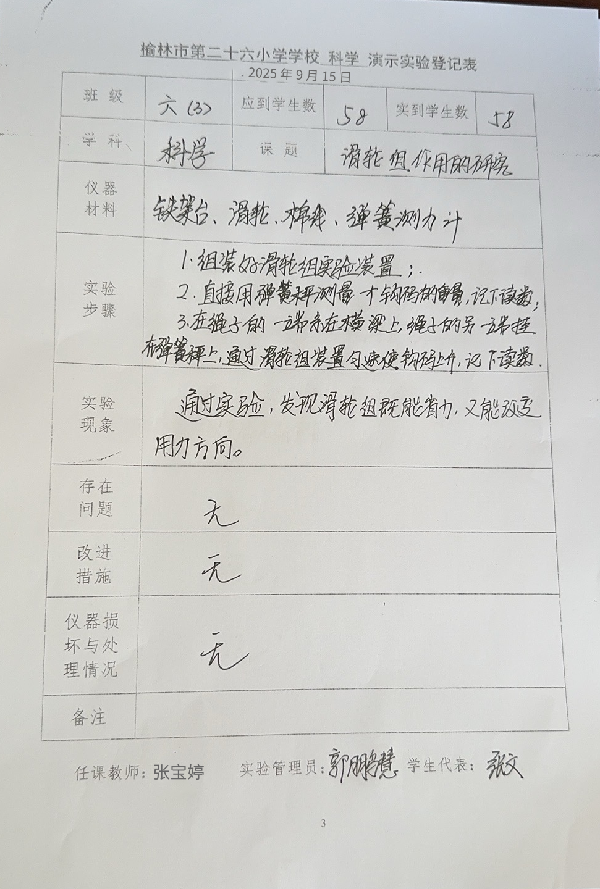 榆林市第二十六小学学校 科学 演示实验登记表
2025年9月15日
班 级 六(3) 应到学生数 58 实到学生数 58
学 科 科学 课 题 滑轮组作用的研究
仪器
材料 铁架台、滑轮、棉线、弹簧测力计
实验
步骤 1.组装好滑轮组实验装置;
2.直接用弹簧秤测量一个钩码的重量,记下读数;
3.在绳子的一端系在横梁上,绳子的另一端挂
在弹簧秤上,通过滑轮组装置匀速使钩码上升,记下读数.
实验
现象 通过实验,发现滑轮组既能省力,又能改变
用力方向。
存在
问题 无
改进
措施 无
仪器损
坏与处
理情况 无
备注
任课教师:张宝婷 实验管理员:郭鹏慧 学生代表:张文
3